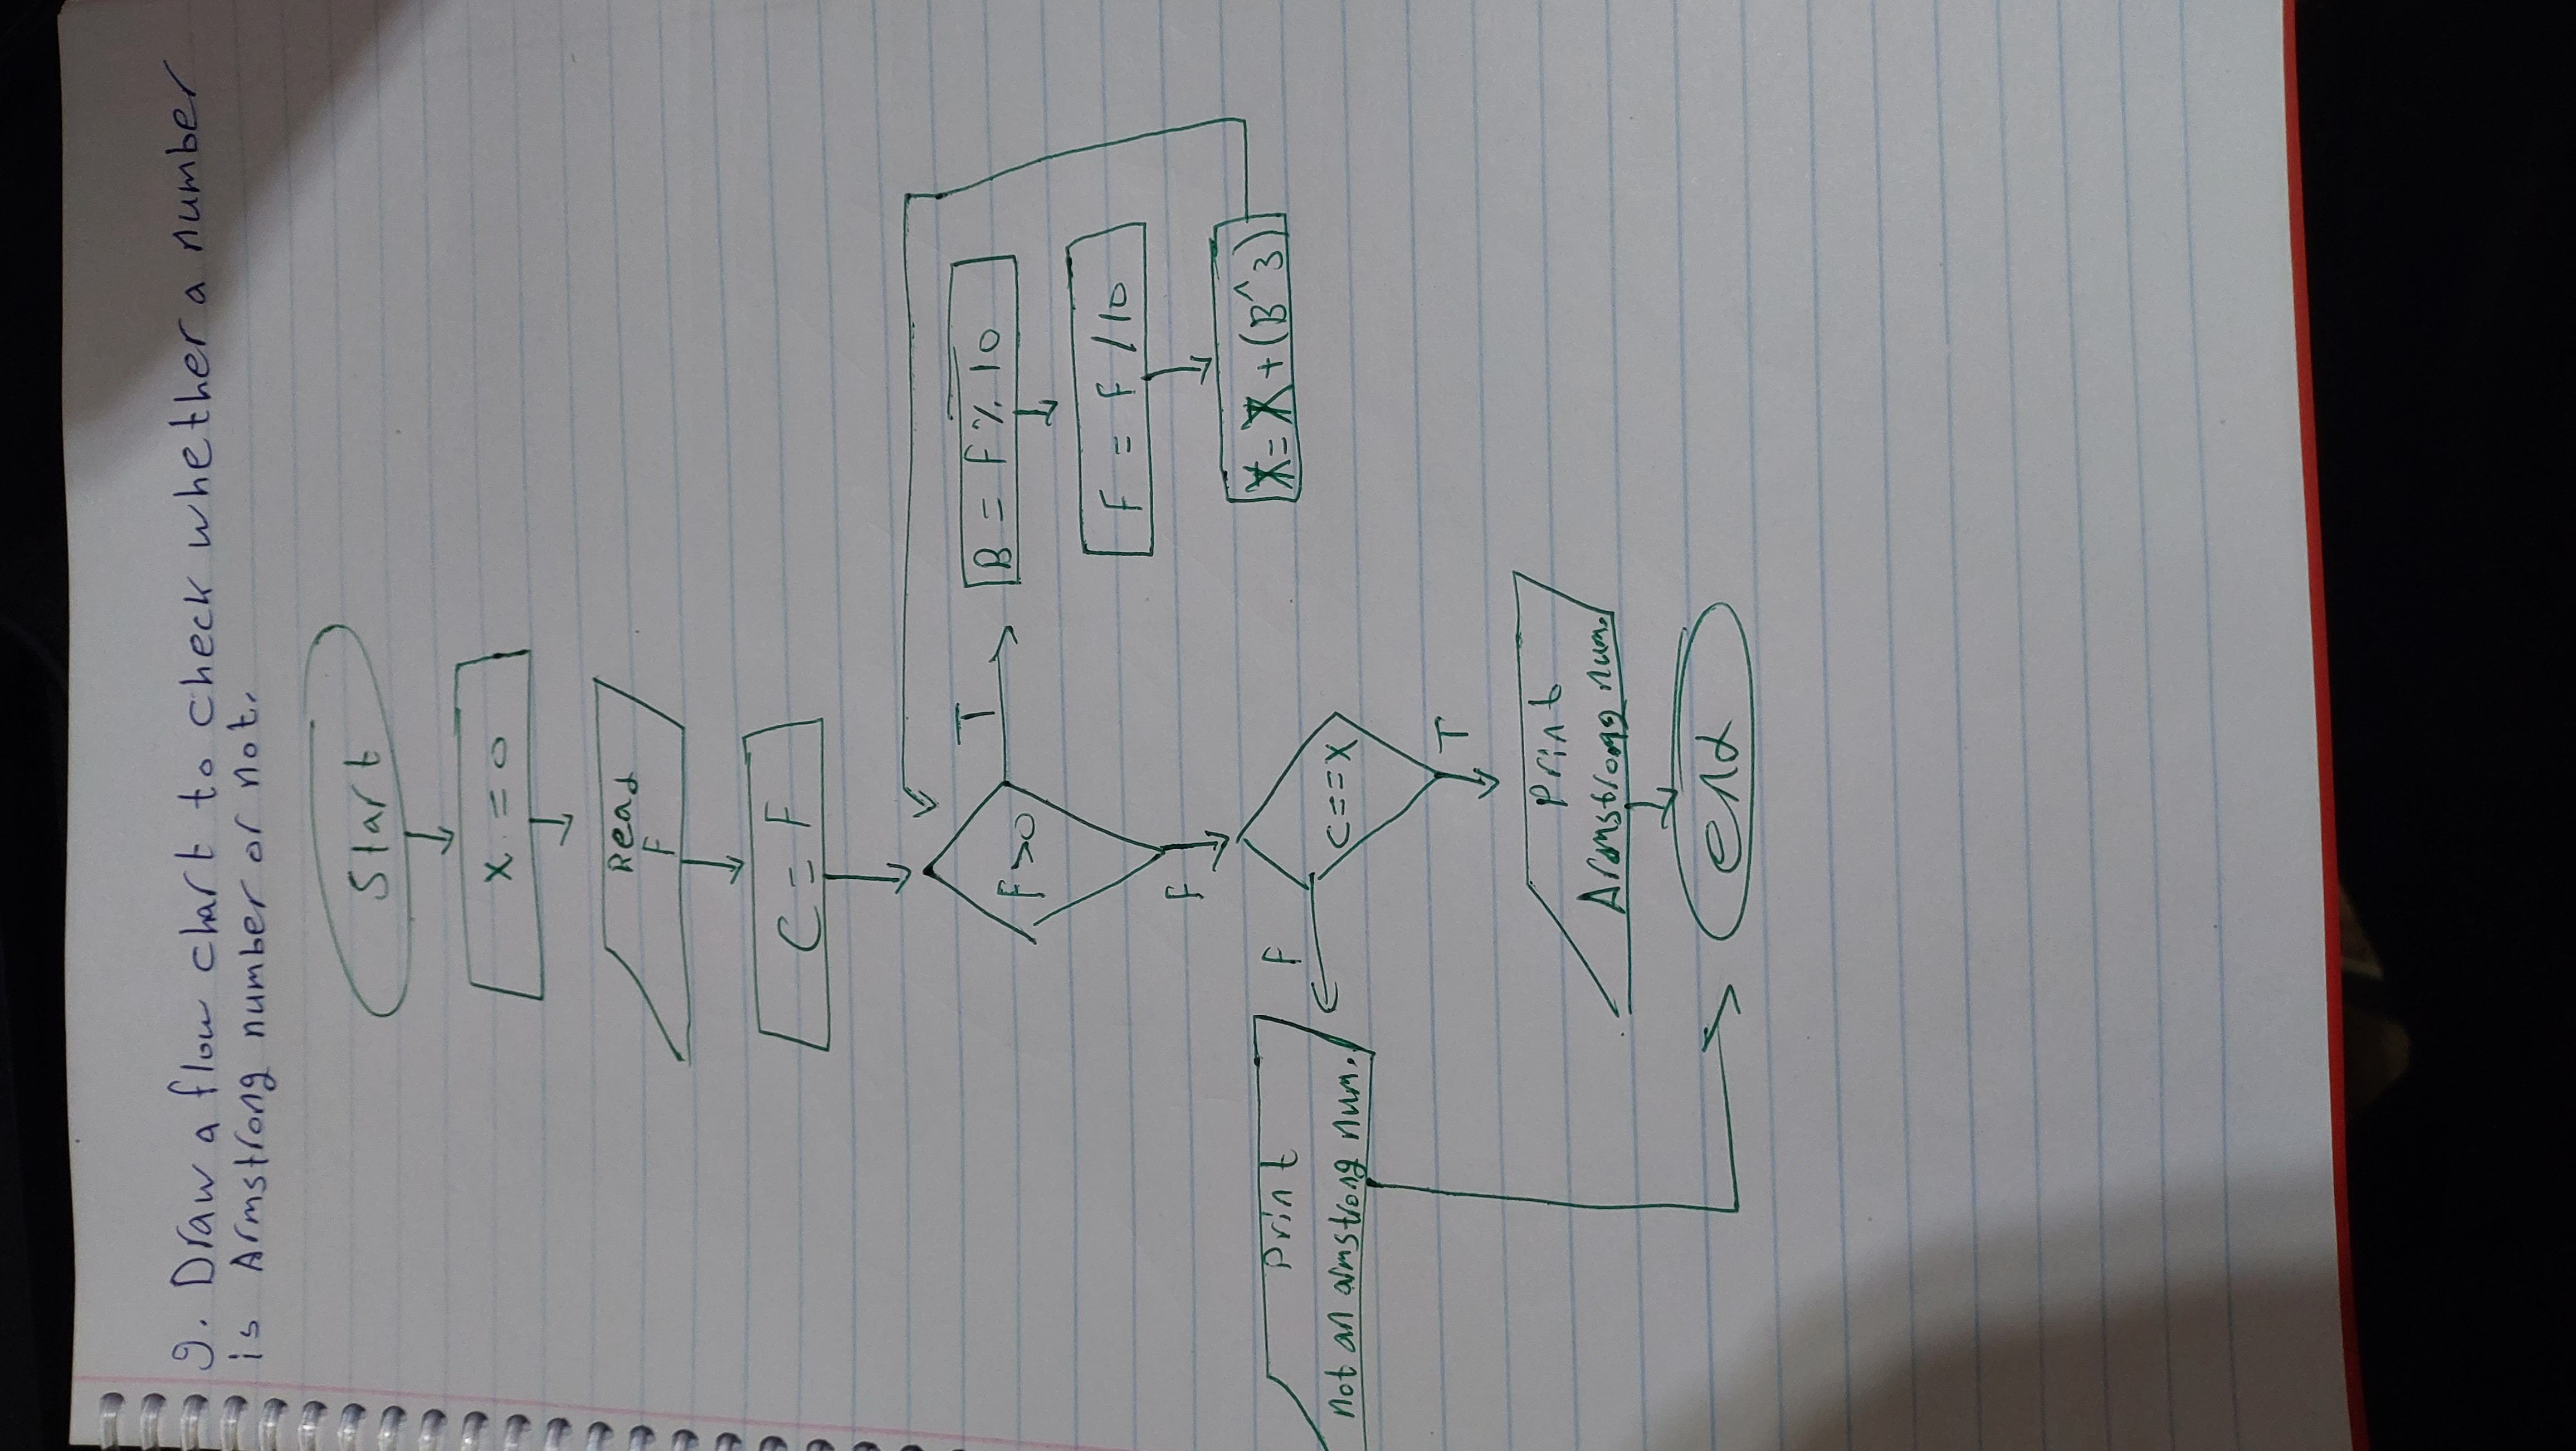 9. Draw a flow chart to check whether a number
is Armstrong number or not.
Start
X = 0
Read
F
C = F
F>0
T
B = F % 10
F = F / 10
X = X + (B^3)
F
C==X
F
Print
not an armstrong num.
T
Print
Armstrong num.
end